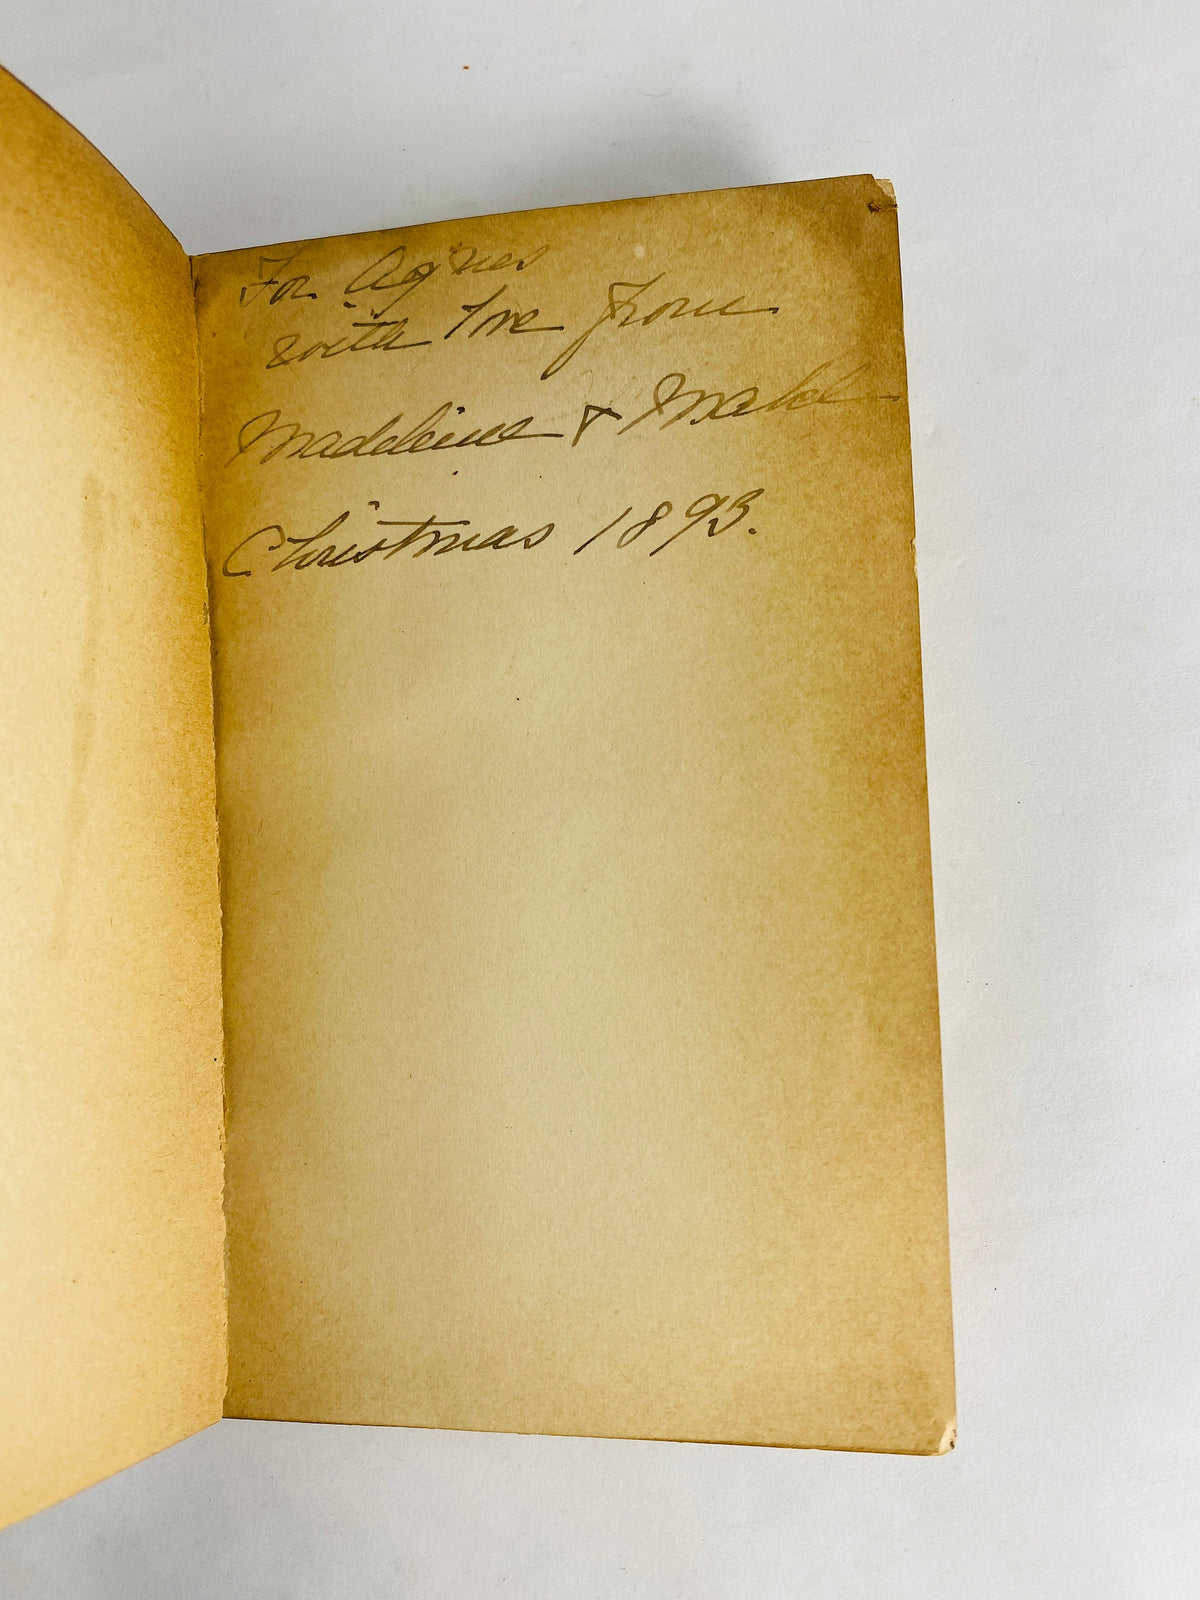 For Agnes
with love from
Madeleine & Mabel
Christmas 1893.